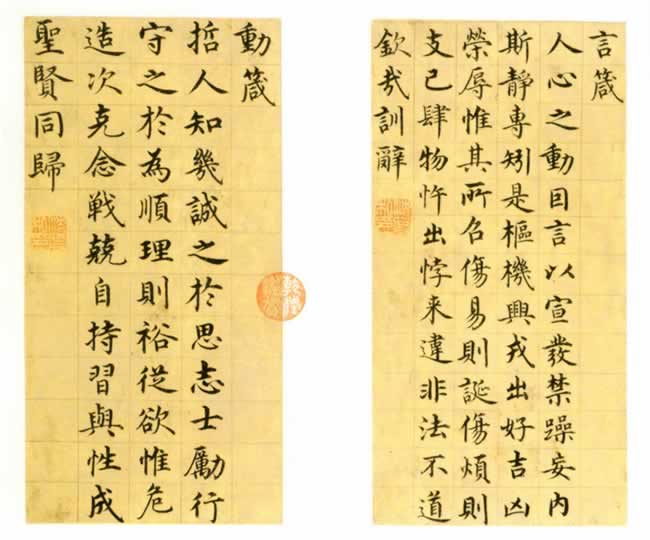 言箴
人心之動因言以宣發禁躁妄內
斯靜專矧是樞機興戎出好吉凶
榮辱惟其所召傷易則誕傷煩則
支己肆物忤出悖来違非法不道
欽哉訓辭
動箴
哲人知幾誠之於思志士勵行
守之於為順理則裕從欲惟危
造次克念戰兢自持習與性成
聖賢同歸